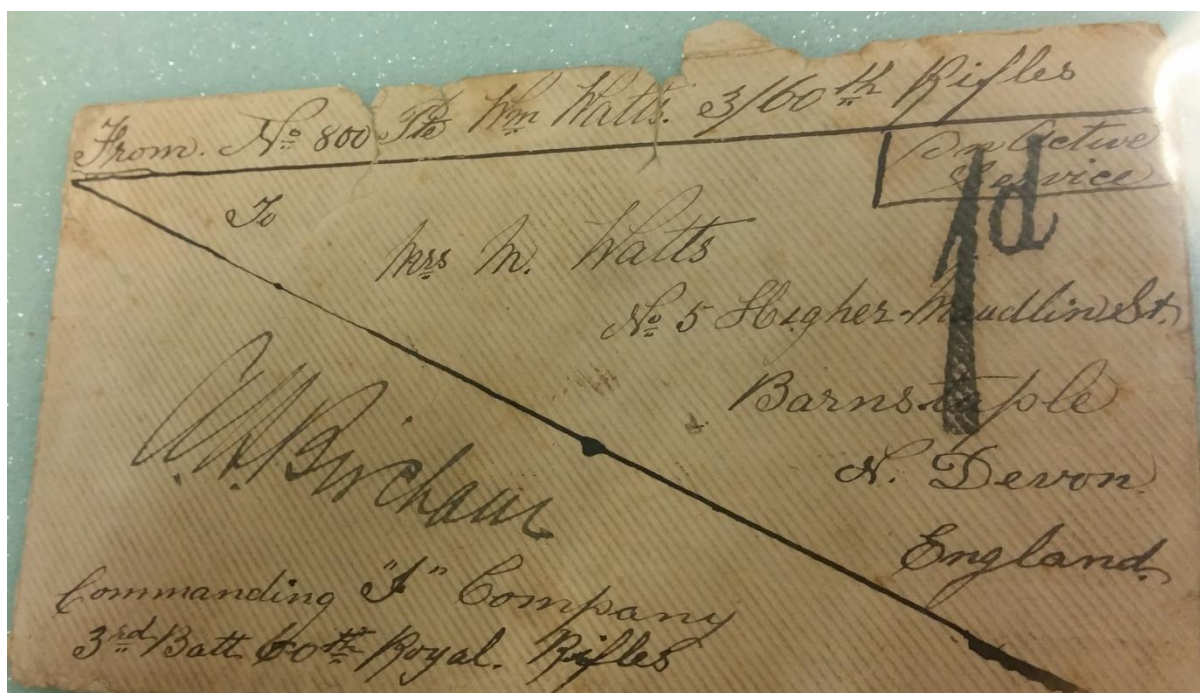 From. No 800 Pte Wm Watts. 3/60th Rifles
On Active
Service
1d
To
Mrs M. Watts
No 5 Higher Maudlin St.
Barnstaple
N. Devon
England.
Bircham
Commanding "I" Company
3rd Batt 60th Royal. Rifles